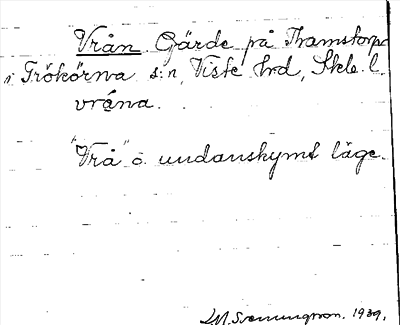 Vrån. Gärde på Thamstorp
i Trökörna s:n, Viste hrd, Skb. l.
vrǻna.
"Vrå" o. undanskymt läge.
L.M. Svenungsson. 1939.